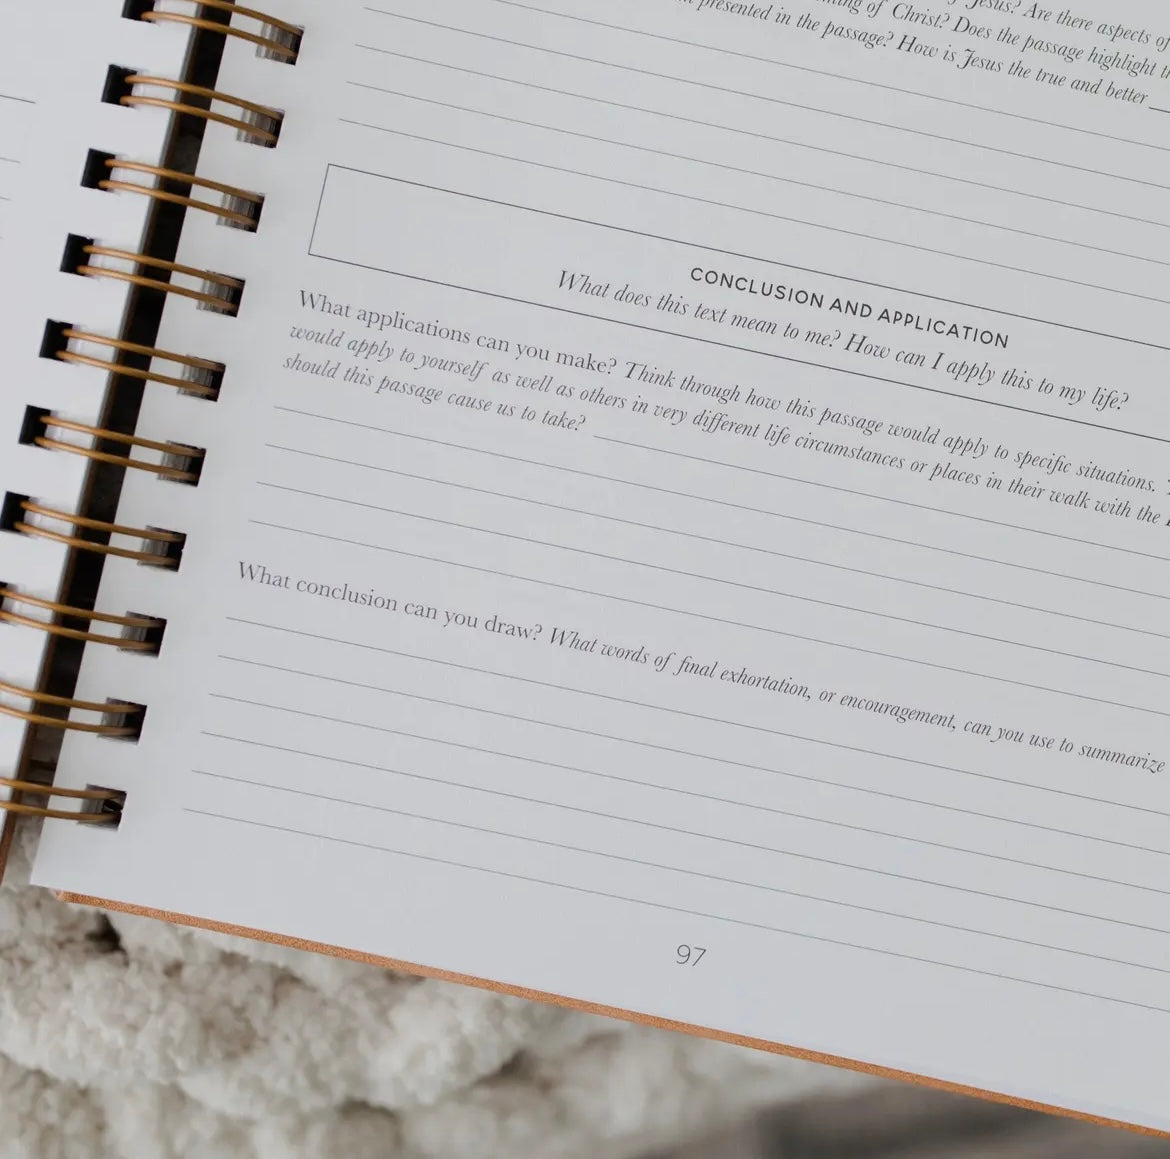 Jesus? Are there aspects of
of Christ? Does the passage highlight
presented in the passage? How is Jesus the true and better
CONCLUSION AND APPLICATION
What does this text mean to me? How can I apply this to my life?
What applications can you make? Think through how this passage would apply to specific situations.
would apply to yourself as well as others in very different life circumstances or places in their walk with the
should this passage cause us to take?
What conclusion can you draw? What words of final exhortation, or encouragement, can you use to summarize
97